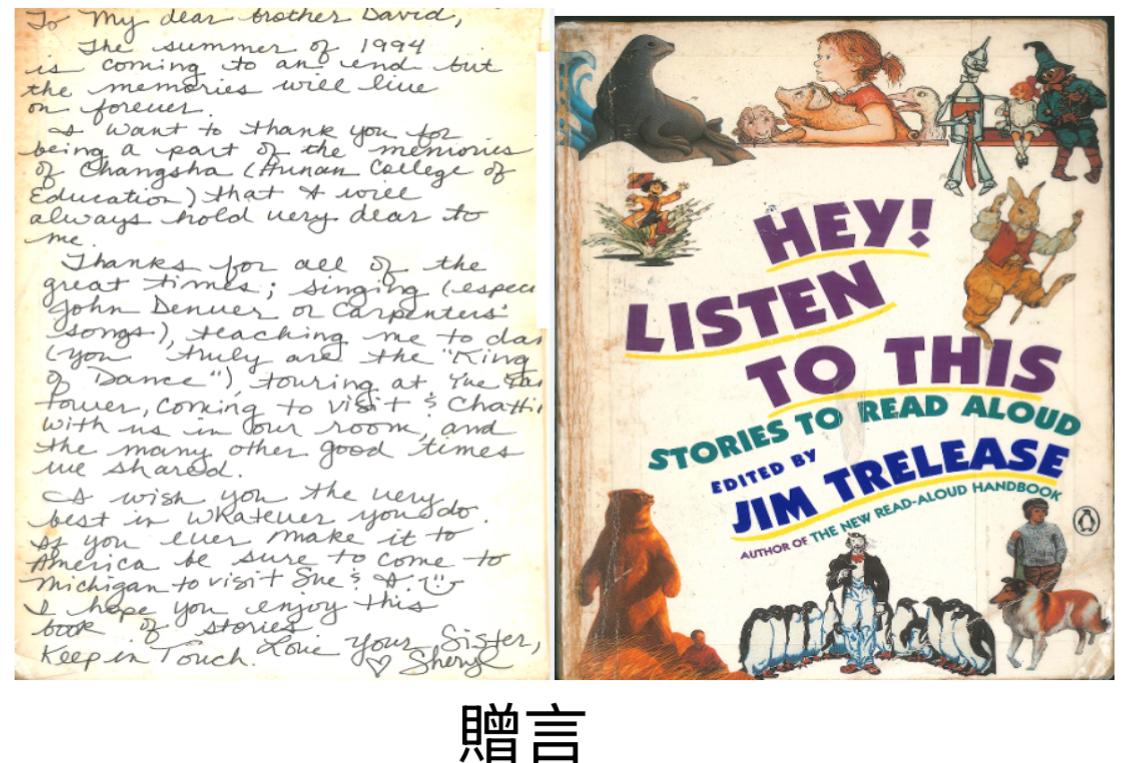 To My dear brother David,
The summer of 1994
is coming to an end but
the memories will live
on forever.
I want to thank you for
being a part of the memories
of Changsha (Hunan College of
Education) that I will
always hold very dear to
me.
Thanks for all of the
great times; singing (espec
John Denver or Carpenters'
songs), teaching me to dan
(you truly are the "King
of Dance"), touring at Yue
tower, coming to visit & chatti
with us in our room, and
the many other good times
we shared.
I wish you the very
best in whatever you do.
If you ever make it to
America be sure to come to
Michigan to visit Sue & I.
I hope you enjoy this
book of stories
Keep in Touch. Love your Sister,
♡ Sheryl
HEY!
LISTEN
TO THIS
STORIES TO READ ALOUD
EDITED BY
JIM TRELEASE
AUTHOR OF THE NEW READ-ALOUD HANDBOOK
贈言